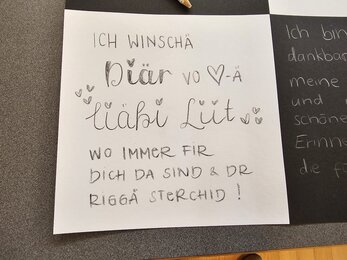 ICH WINSCHÄ
Diär VO ♡-Ä
liäbi Liit
WO IMMER FIR
DICH DA SIND & DR
RIGGÄ STERCHID !
Ich bin
dankbar
meine
und
schöne
Erinne
die f